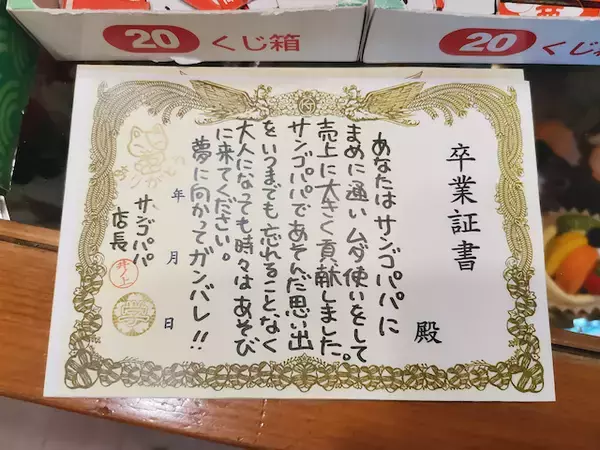 20 くじ箱
20 くじ箱
卒業証書
殿
あなたはサンゴパパに
まめに通いムダ使いをして
売上に大きく貢献しました。
サンゴパパであそんだ思い出
をいつまでも忘れることなく
大人になっても時々はあそび
に来てください。
夢に向かってガンバレ!!
年 月 日
サンゴパパ
店長
井上
夢